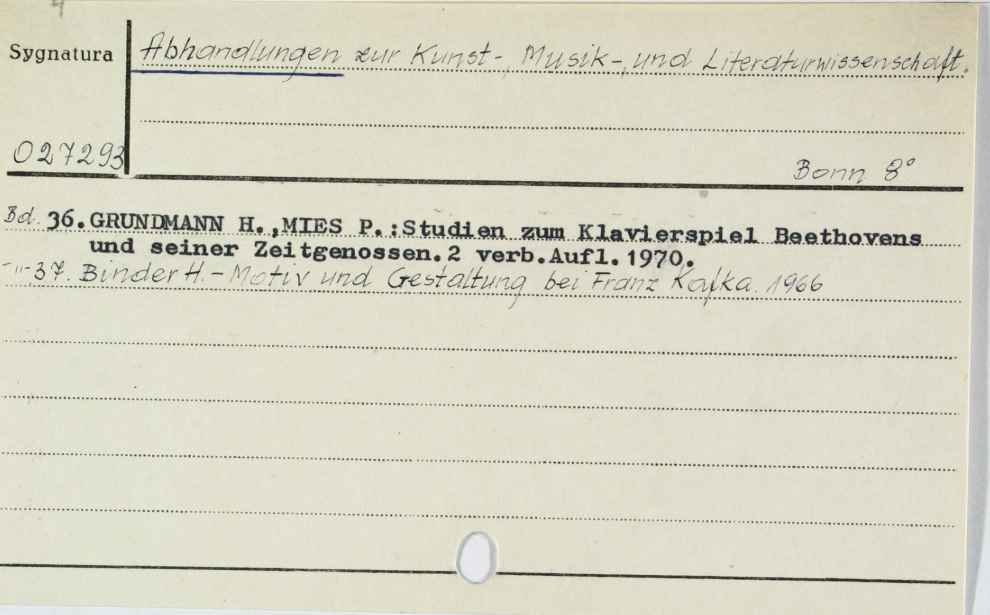 4
Sygnatura
Abhandlungen zur Kunst-, Musik-, und Literaturwissenschaft.
027293
Bonn 8°
Bd. 36. GRUNDMANN H.,MIES P.:Studien zum Klavierspiel Beethovens
und seiner Zeitgenossen. 2 verb.Aufl. 1970.
-"- 37. Binder H. - Motiv und Gestaltung bei Franz Kafka. 1966